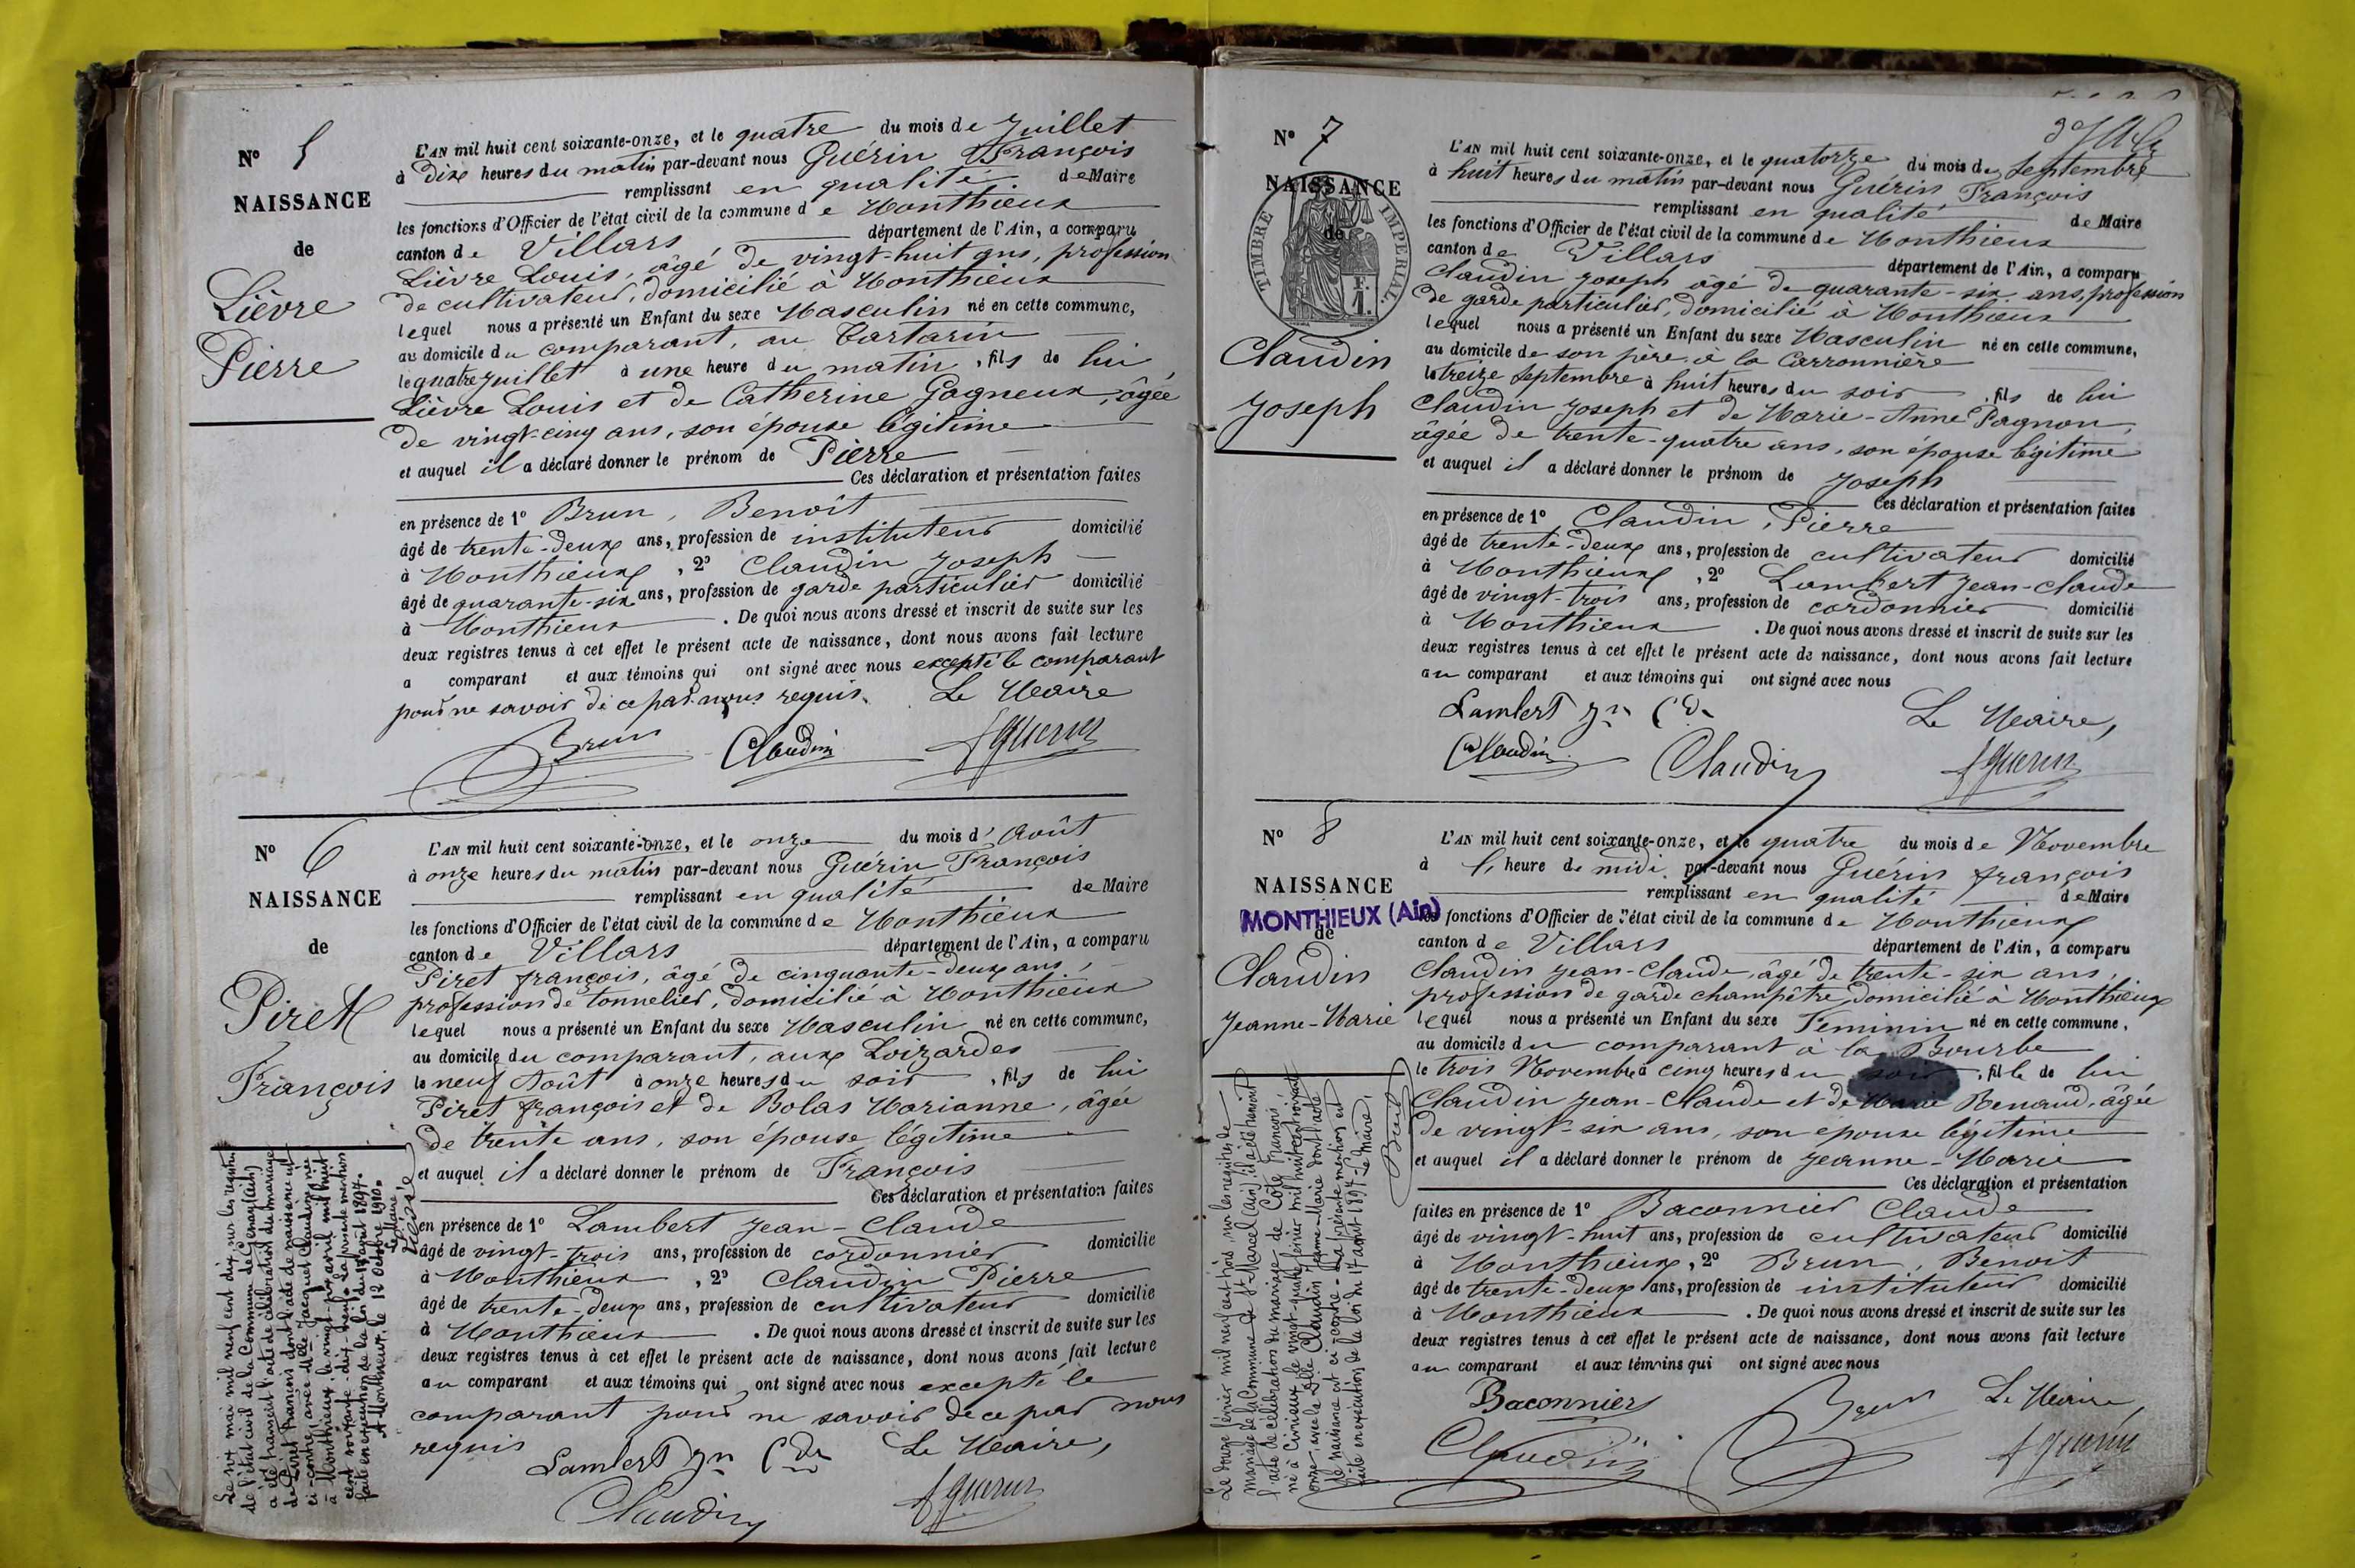 N° 5
NAISSANCE
de
Lièvre
Pierre
L'AN mil huit cent soixante-onze, et le quatre du mois de Juillet
à dix heures du matin par-devant nous Guérin François
remplissant en qualité de Maire
les fonctions d'Officier de l'état civil de la commune de Monthieux
canton de Villars département de l'Ain, a comparu
Lièvre Louis, âgé de vingt-huit ans, profession
de cultivateur, domicilié à Monthieux
lequel nous a présenté un Enfant du sexe Masculin né en cette commune,
au domicile du comparant, au Tartarin
le quatre juillet à une heure du matin, fils de lui
Lièvre Louis et de Catherine Gagneux, âgée
de vingt-cinq ans, son épouse légitime
et auquel il a déclaré donner le prénom de Pierre
Ces déclaration et présentation faites
en présence de 1° Brun, Benoît
âgé de trente-deux ans, profession de instituteur domicilié
à Monthieux, 2° Claudin Joseph
âgé de quarante-six ans, profession de garde particulier domicilié
à Monthieux. De quoi nous avons dressé et inscrit de suite sur les
deux registres tenus à cet effet le présent acte de naissance, dont nous avons fait lecture
a comparant et aux témoins qui ont signé avec nous excepté le comparant
pour ne savoir de ce par nous requis. Le Maire
Brun Claudin f Guerin
N° 6
NAISSANCE
de
Piret
François
L'AN mil huit cent soixante-onze, et le onze du mois d'Août
à onze heures du matin par-devant nous Guérin François
remplissant en qualité de Maire
les fonctions d'Officier de l'état civil de la commune de Monthieux
canton de Villars département de l'Ain, a comparu
Piret françois, âgé de cinquante-deux ans,
profession de tonnelier, domicilié à Monthieux
lequel nous a présenté un Enfant du sexe Masculin né en cette commune,
au domicile du comparant, aux Loizardes
le neuf Août à onze heures du soir, fils de lui
Piret françois et de Bolas Marianne, âgée
de trente ans, son épouse légitime
et auquel il a déclaré donner le prénom de François
Ces déclaration et présentation faites
en présence de 1° Lambert Jean-Claude
âgé de vingt-trois ans, profession de cordonnier domicilié
à Monthieux, 2° Claudin Pierre
âgé de trente-deux ans, profession de cultivateur domicilié
à Monthieux. De quoi nous avons dressé et inscrit de suite sur les
deux registres tenus à cet effet le présent acte de naissance, dont nous avons fait lecture
au comparant et aux témoins qui ont signé avec nous excepté le
comparant pour ne savoir de ce par nous
requis Lambert Jn Cde Le Maire,
Claudin f Guerin
Le six mai mil neuf cent dix, sur les registres
de l'état civil de la Commune de Genay (Ain)
a été transcrit l'acte de célébration du mariage
de Piret François dont l'acte de naissance est
ci-contre, avec Mlle Jacquet Claudine née
à Monthieux, le vingt-six avril mil huit
cent soixante-dix-neuf. La présente mention
faite en exécution de la loi du 17 août 1897.
A Monthieux, le 12 Octobre 1910.
Le Maire,
N° 7
NAISSANCE
de
TIMBRE IMPERIAL.
1 F.
Claudin
Joseph
L'AN mil huit cent soixante-onze, et le quatorze du mois de Septembre
à huit heures du matin par-devant nous Guérin François
remplissant en qualité de Maire
les fonctions d'Officier de l'état civil de la commune de Monthieux
canton de Villars département de l'Ain, a comparu
Claudin Joseph âgé de quarante-six ans, profession
de garde particulier, domicilié à Monthieux
lequel nous a présenté un Enfant du sexe Masculin né en cette commune,
au domicile de son père à la Carronnière
le treize Septembre à huit heures du soir, fils de lui
Claudin Joseph et de Marie-Anne Pagnon,
âgée de trente-quatre ans, son épouse légitime
et auquel il a déclaré donner le prénom de Joseph
Ces déclaration et présentation faites
en présence de 1° Claudin, Pierre
âgé de trente-deux ans, profession de cultivateur domicilié
à Monthieux, 2° Lambert Jean-Claude
âgé de vingt-trois ans, profession de cordonnier domicilié
à Monthieux. De quoi nous avons dressé et inscrit de suite sur les
deux registres tenus à cet effet le présent acte de naissance, dont nous avons fait lecture
au comparant et aux témoins qui ont signé avec nous
Lambert Jn Cde Le Maire,
Claudin Claudin f Guerin
N° 8
NAISSANCE
MONTHIEUX (Ain)
de
Claudin
Jeanne-Marie
L'AN mil huit cent soixante-onze, et le quatre du mois de Novembre
à l' heure de midi par-devant nous Guérin françois
remplissant en qualité de Maire
les fonctions d'Officier de l'état civil de la commune de Monthieux
canton de Villars département de l'Ain, a comparu
Claudin Jean-Claude, âgé de trente-six ans,
profession de garde champêtre, domicilié à Monthieux
lequel nous a présenté un Enfant du sexe Féminin né en cette commune,
au domicile du comparant à la Bourbe
le trois Novembre à cinq heures du soir, fille de lui
Claudin Jean-Claude et de Marie Renaud, âgée
de vingt-six ans, son epouse légitime
et auquel il a déclaré donner le prénom de Jeanne-Marie
Ces déclaration et présentation
faites en présence de 1° Baconnier Claude
âgé de vingt-huit ans, profession de cultivateur domicilié
à Monthieux, 2° Brun, Benoit
âgé de trente-deux ans, profession de instituteur domicilié
à Monthieux. De quoi nous avons dressé et inscrit de suite sur les
deux registres tenus à cet effet le présent acte de naissance, dont nous avons fait lecture
au comparant et aux témoins qui ont signé avec nous
Baconnier Brun Le Maire,
Claudin f Guerin
Le douze février mil neuf cent trois, sur les registres de
mariage de la Commune de St Marcel (Ain), il a été transcrit
l'acte de célébration du mariage de Côte François,
né à Civrieux, le vingt-quatre février mil huit cent soixante
onze, avec la Dlle Claudin Jeanne-Marie dont l'acte
de naissance est ci-contre - La présente mention est
faite en exécution de la loi du 17 août 1897. Le Maire,